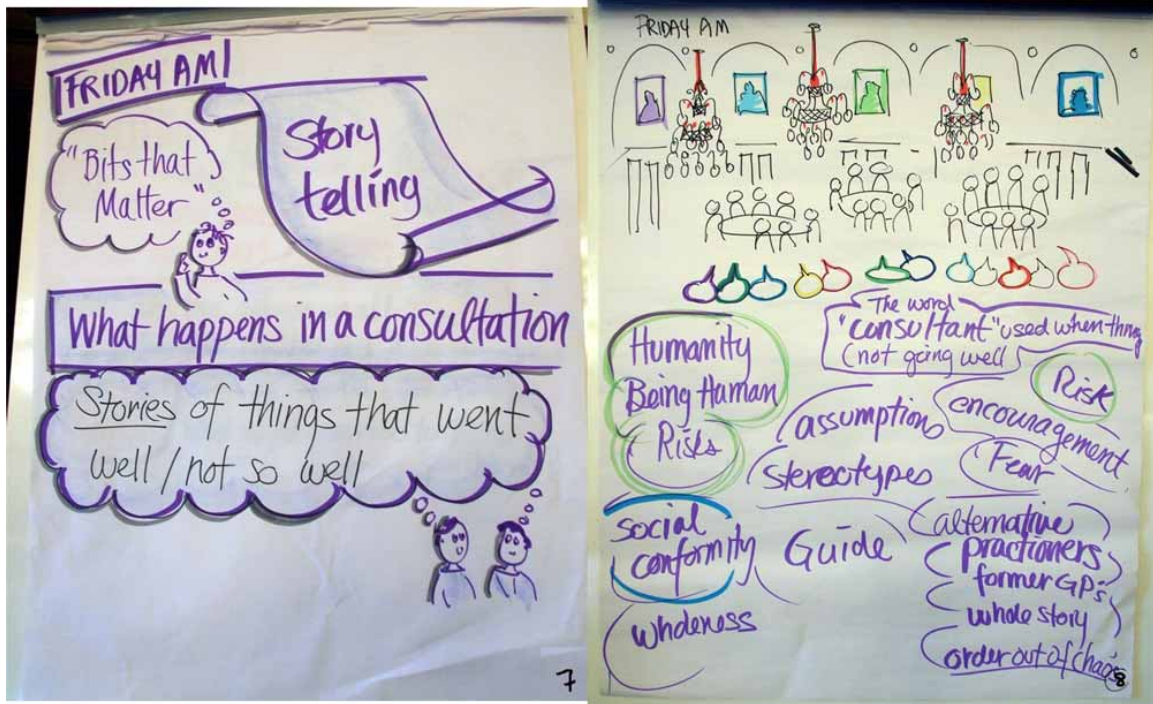 FRIDAY AM
Story
telling
"Bits that
Matter"
What happens in a consultation
Stories of things that went
well/not so well
7
FRIDAY AM
The word
"consultant" used when thing
not going well
Humanity
Being Human
Risks
Risk
assumption
encouragement
stereotypes
Fear
social
conformity
Guide
alternative
practioners
former GP's
whole story
order out of chaos
wholeness
8